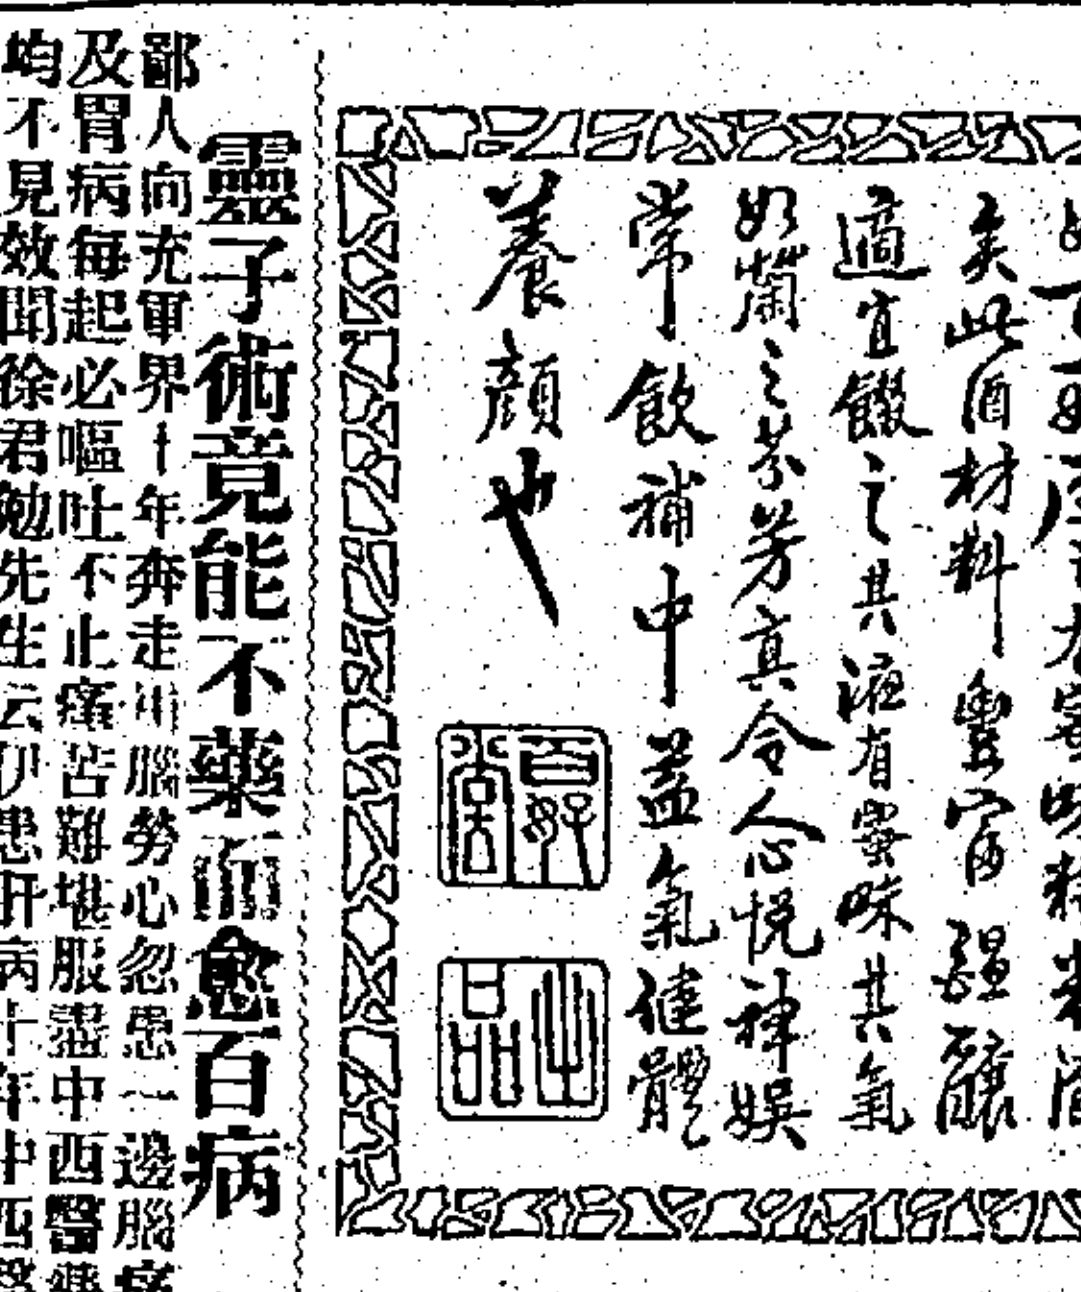 矣此酒材料豐富醞釀
適宜餾之其液有蜜味其氣
如蘭之芬芳真令人心悅神娛
常飲補中益氣健體
養顏也
靈子術竟能不藥而愈百病
鄙人向充軍界十年奔走川腦勞心忽患一邊腦痛
及胃病每起必嘔吐不止痛苦難堪服盡中西醫藥
均不見效聞徐君勉先生云伊患肝病十年中西醫